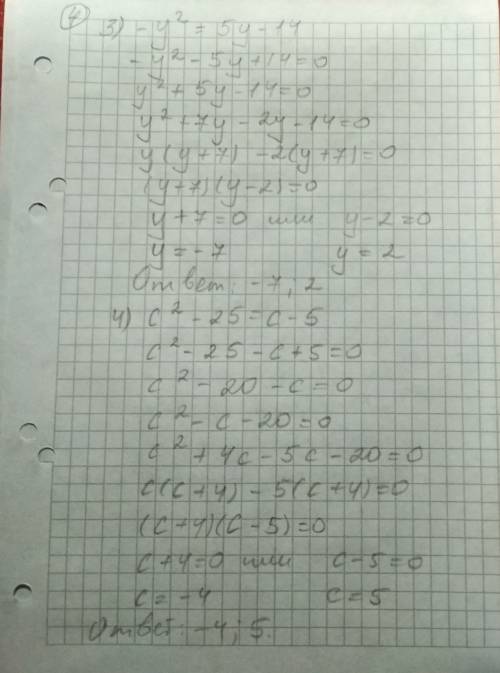 4
3) -y² = 5y - 14
-y² - 5y + 14 = 0
y² + 5y - 14 = 0
y² + 7y - 2y - 14 = 0
y(y + 7) - 2(y + 7) = 0
(y + 7)(y - 2) = 0
y + 7 = 0 или y - 2 = 0
y = -7 y = 2
Ответ: -7; 2
4) c² - 25 = c - 5
c² - 25 - c + 5 = 0
c² - 20 - c = 0
c² - c - 20 = 0
c² + 4c - 5c - 20 = 0
c(c + 4) - 5(c + 4) = 0
(c + 4)(c - 5) = 0
c + 4 = 0 или c - 5 = 0
c = -4 c = 5
Ответ: -4; 5.